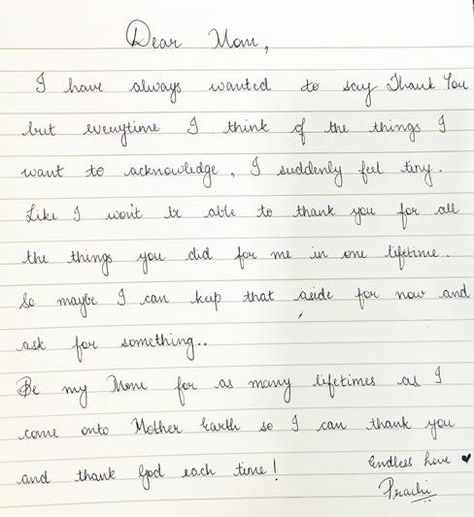 Dear Mom,
I have always wanted to say Thank You
but everytime I think of the things I
want to acknowledge, I suddenly feel tiny.
Like I won't be able to thank you for all
the things you did for me in one lifetime.
So maybe I can keep that aside for now and
ask for something..
Be my Mom for as many lifetimes as I
come onto Mother Earth so I can thank you
and thank God each time!
Endless love ♥
Prachi